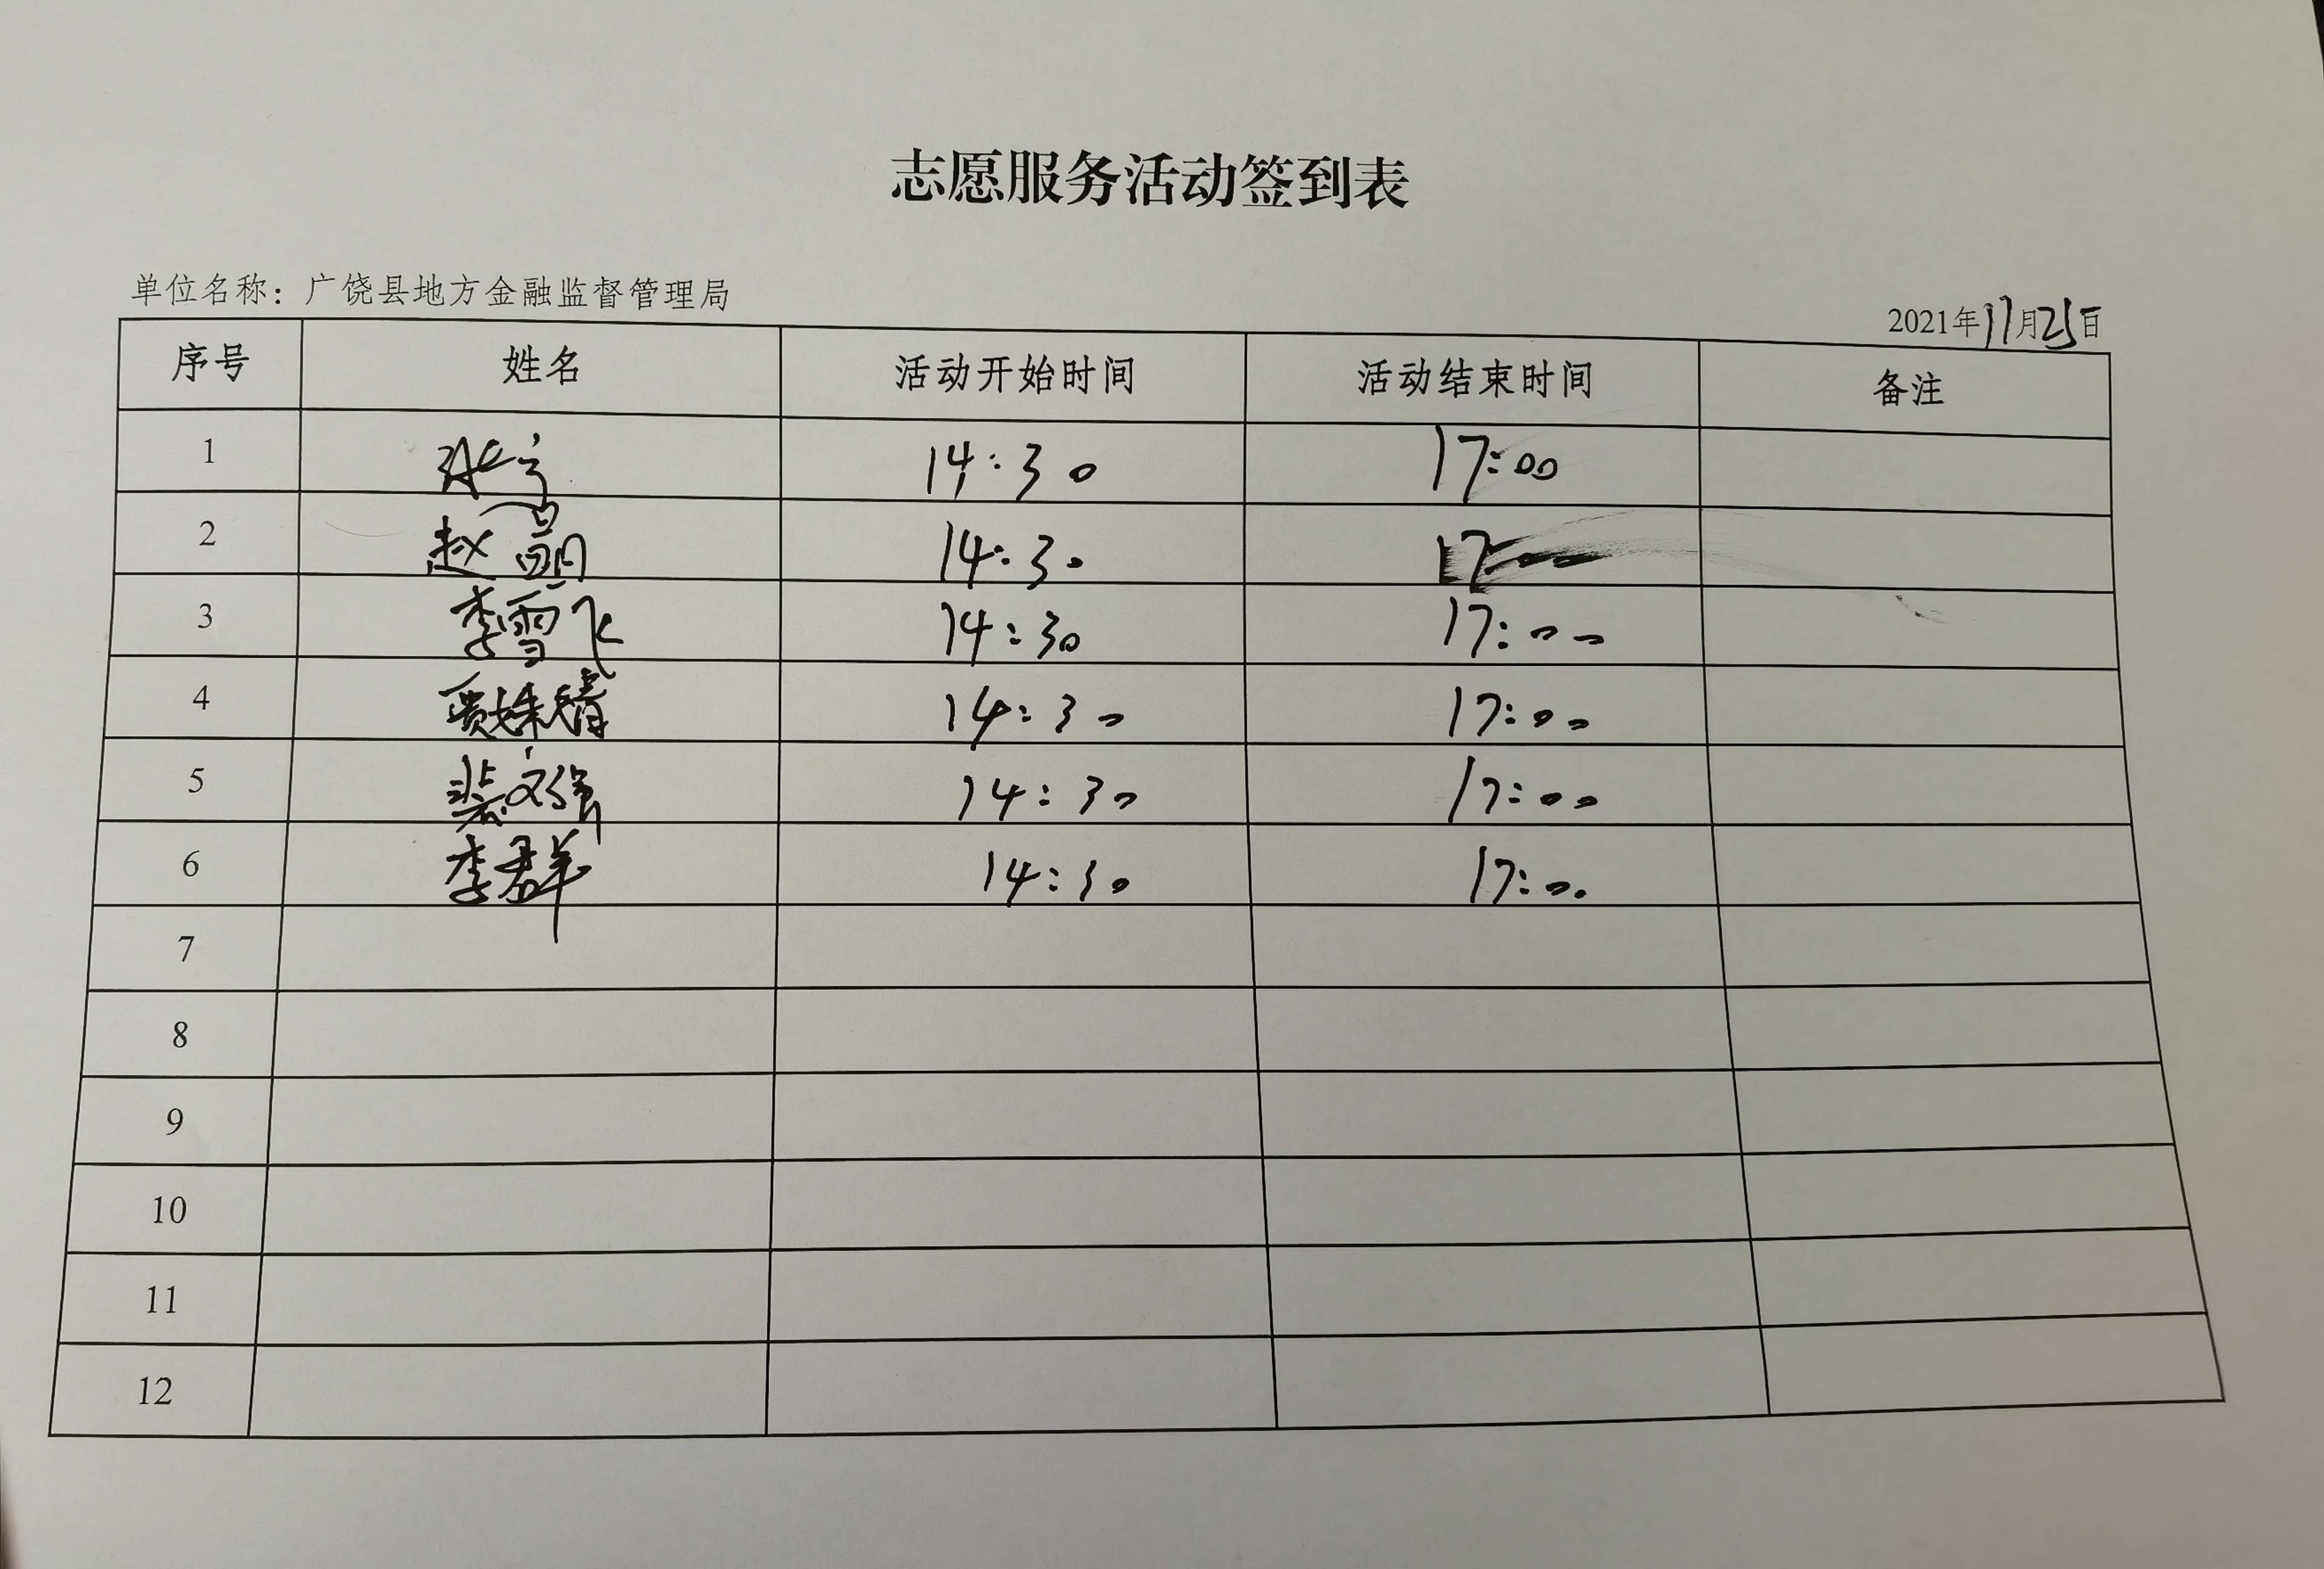 志愿服务活动签到表
单位名称：广饶县地方金融监督管理局
2021年11月25日
序号 姓名 活动开始时间 活动结束时间 备注
1 14:30 17:00
2 赵 14:30 17
3 李雪飞 14:30 17:00
4 贾姝婧 14:30 17:00
5 裴文强 14:30 17:00
6 李群 14:30 17:00
7
8
9
10
11
12